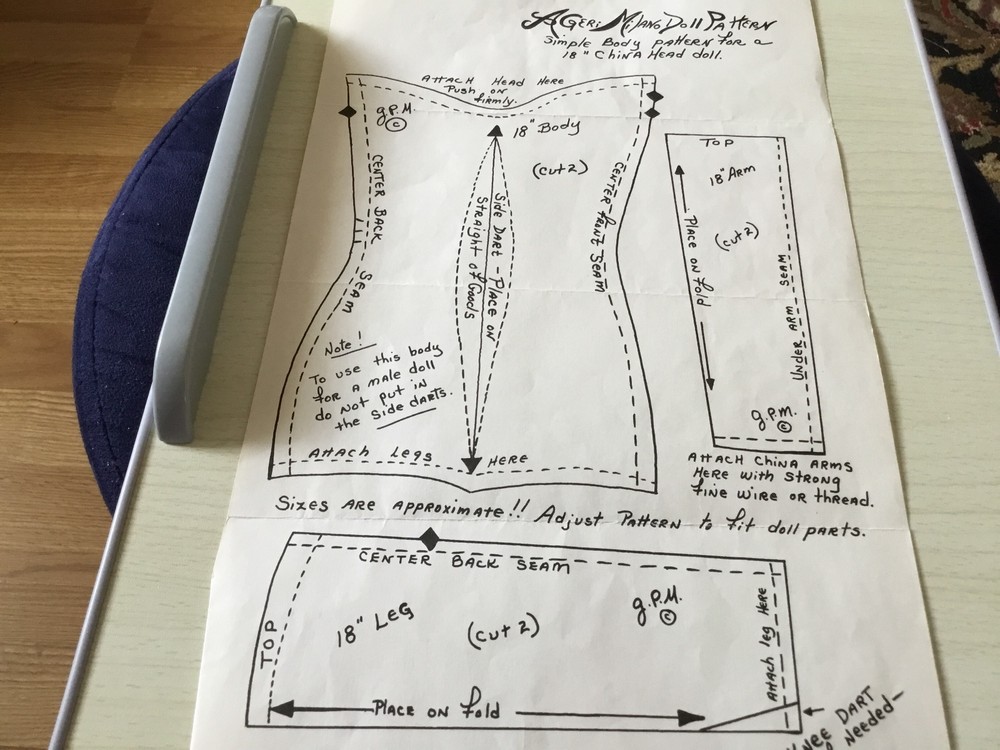 A Geri Milano Doll Pattern
Simple Body pattern for a
18" China Head doll.
ATTACH HEAD HERE
Push on
firmly.
g.P.M.
©
18" Body
(cut 2)
CENTER BACK SEAM
Side DART - Place on
Straight of Goods
CENTER FRONT SEAM
Note!
To use this body
for a male doll
do not put in
the side darts.
Attach Legs HERE
TOP
18" ARM
(cut 2)
Place on fold
UNDER ARM SEAM
g.p.m.
©
ATTACH CHINA ARMS
HERE WITH STRONG
FINE WIRE OR THREAD.
Sizes are approximate!! Adjust Pattern to fit doll parts.
CENTER BACK SEAM
TOP
18" LEG
(cut 2)
g.P.M.
©
Attach leg HERE
Place on fold
DART
needed-